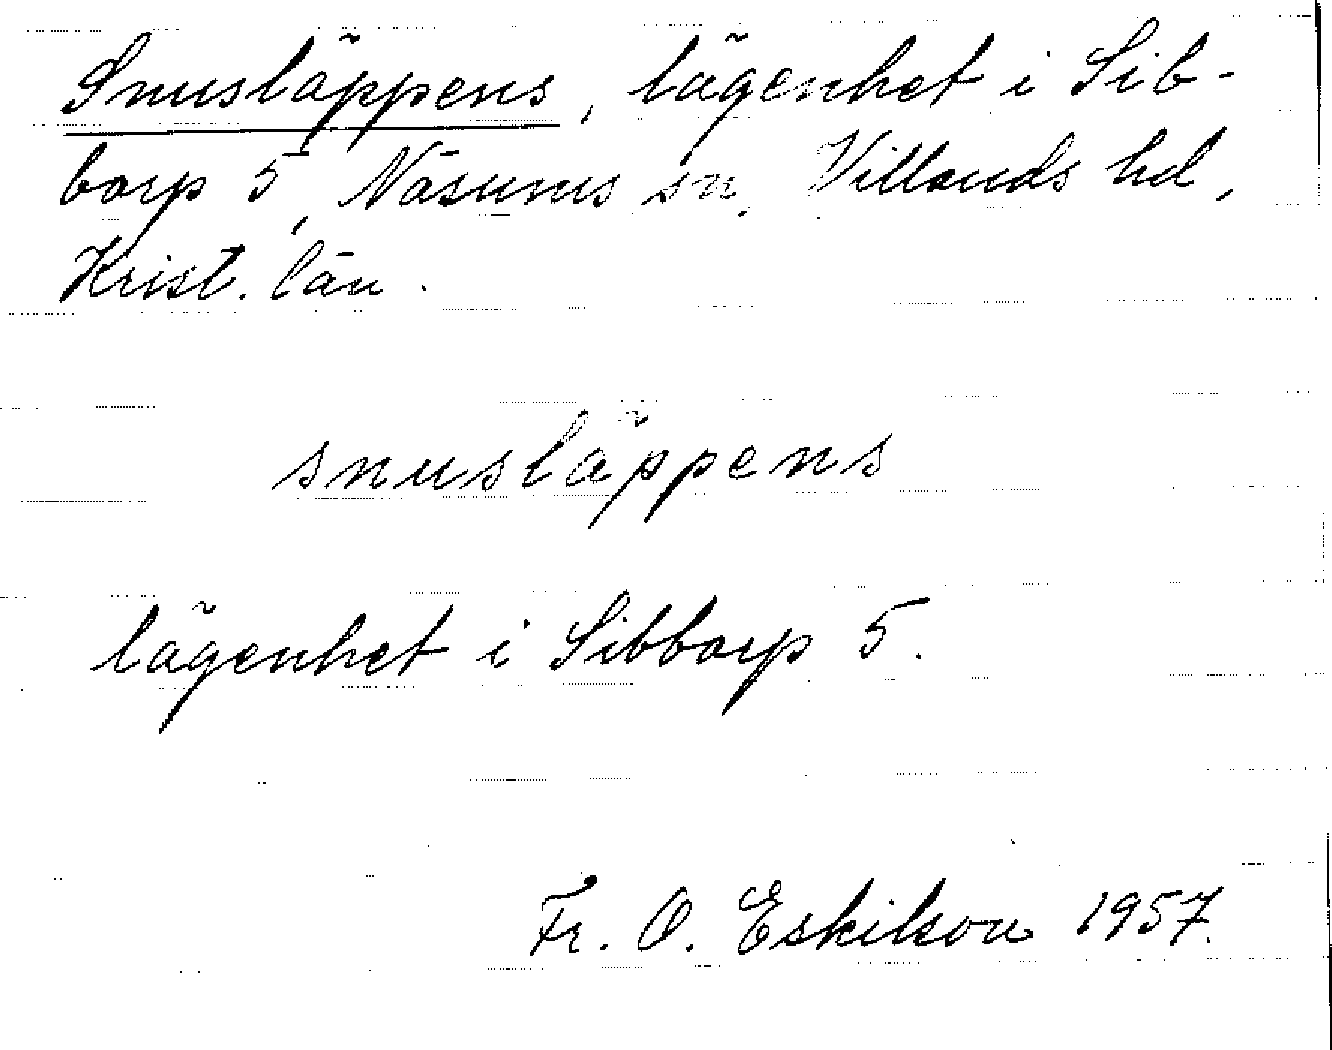 Snusläppens, lägenhet i Sib-
barp 5, Näsums sn, Villands hd,
Krist. län.
snusläppens
lägenhet i Sibbarp 5.
Fr. O. Eskilson 1957.